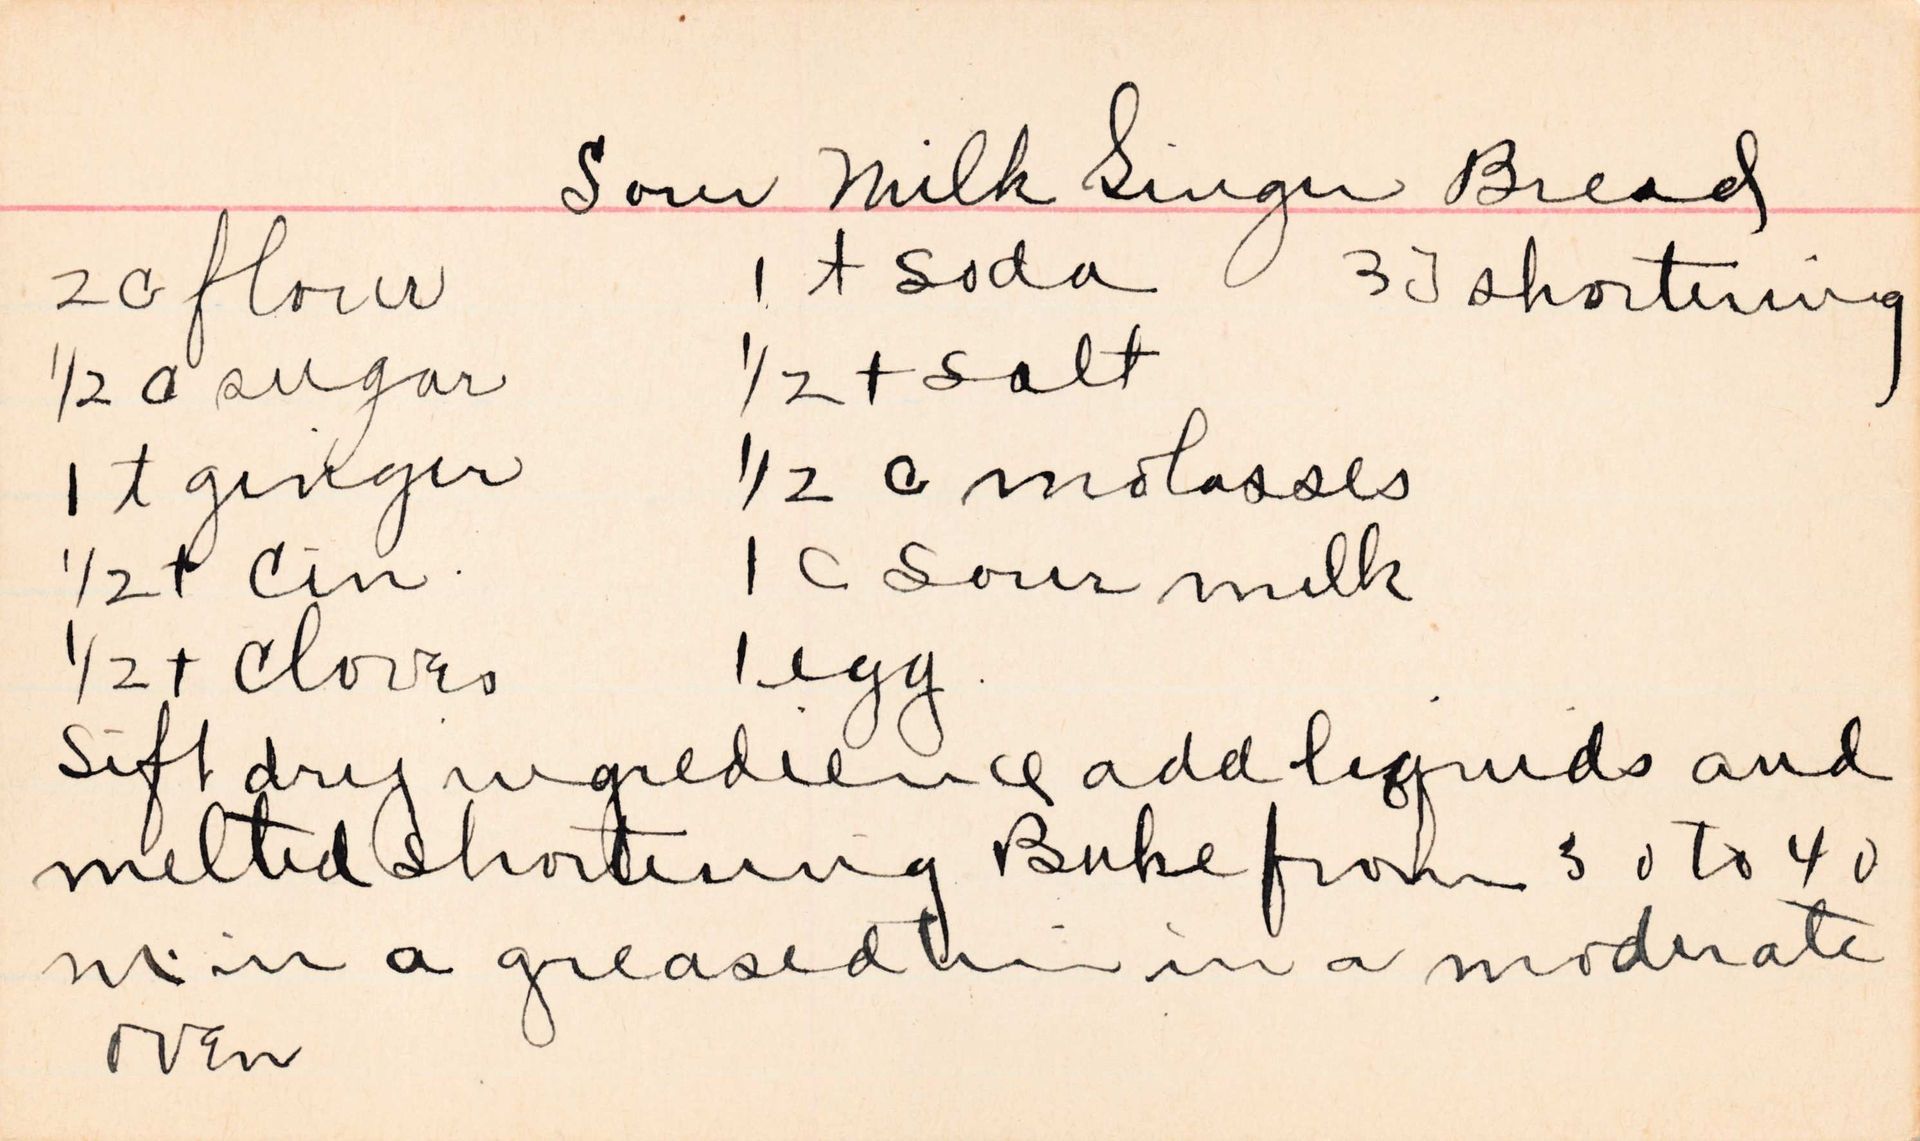 Sour Milk Ginger Bread
2 c flour 1 t soda 3 T shortening
1/2 c sugar 1/2 t salt
1 t ginger 1/2 c molasses
1/2 t cin. 1 c sour milk
1/2 t cloves 1 egg.
Sift dry ingredience add liquids and
melted shortening Bake from 30 to 40
min in a greased tin in a moderate
oven